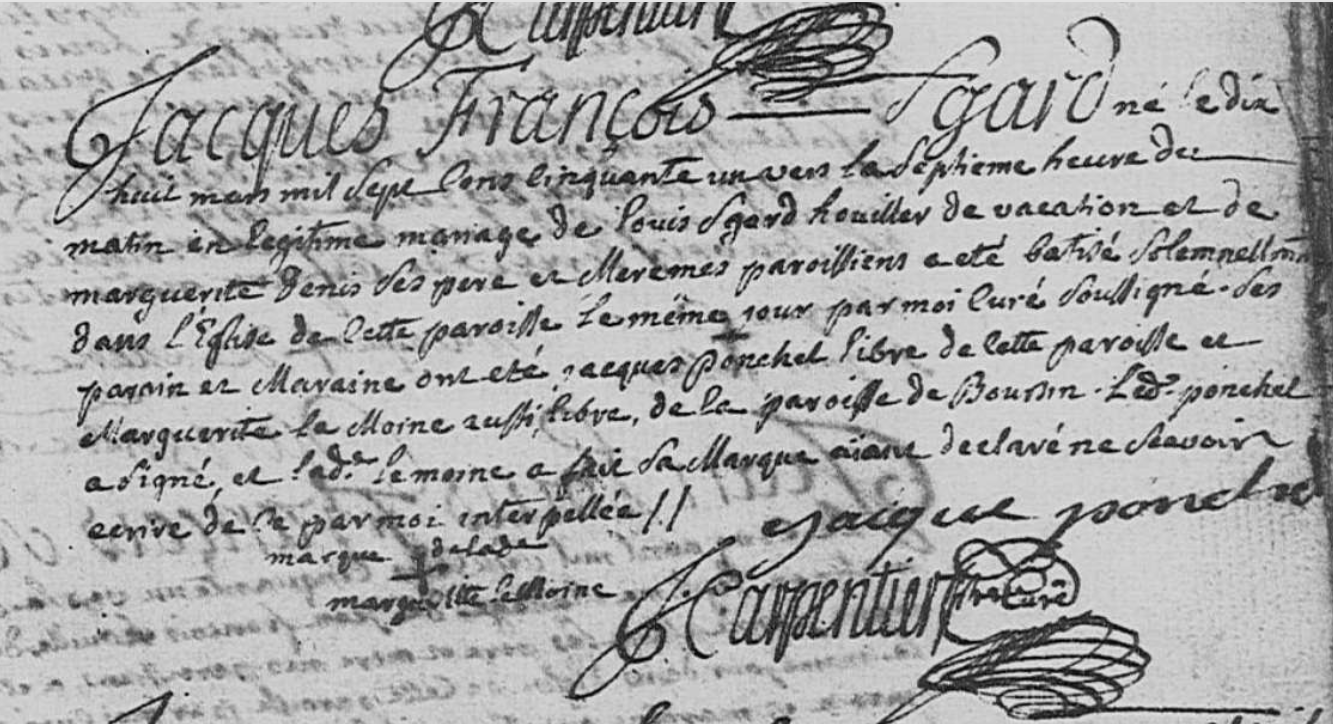 Carpentier
Jacques François Sgard né le dix
huit mars mil sept cens cinquante un vers la septieme heure du
matin en legitime mariage de louis Sgard houiller de vacation et de
marguerite Denis ses pere et Mere mes paroissiens a eté batisé solemnellmt
dans l'Eglise de cette paroisse le même jour par moi curé soussigné. ses
parain et Maraine ont eté jacques ponchel libre de cette paroisse et
Marguerite le Moine aussi libre, de la paroisse de Boursin. led. ponchel
a signé, et lade. le moine a fait sa Marque aiant declaré ne sçavoir
ecrire de ce par moi interpellée //
jaique ponchel
marque de lade
marguerite le Moine
J. Carpentier
curé